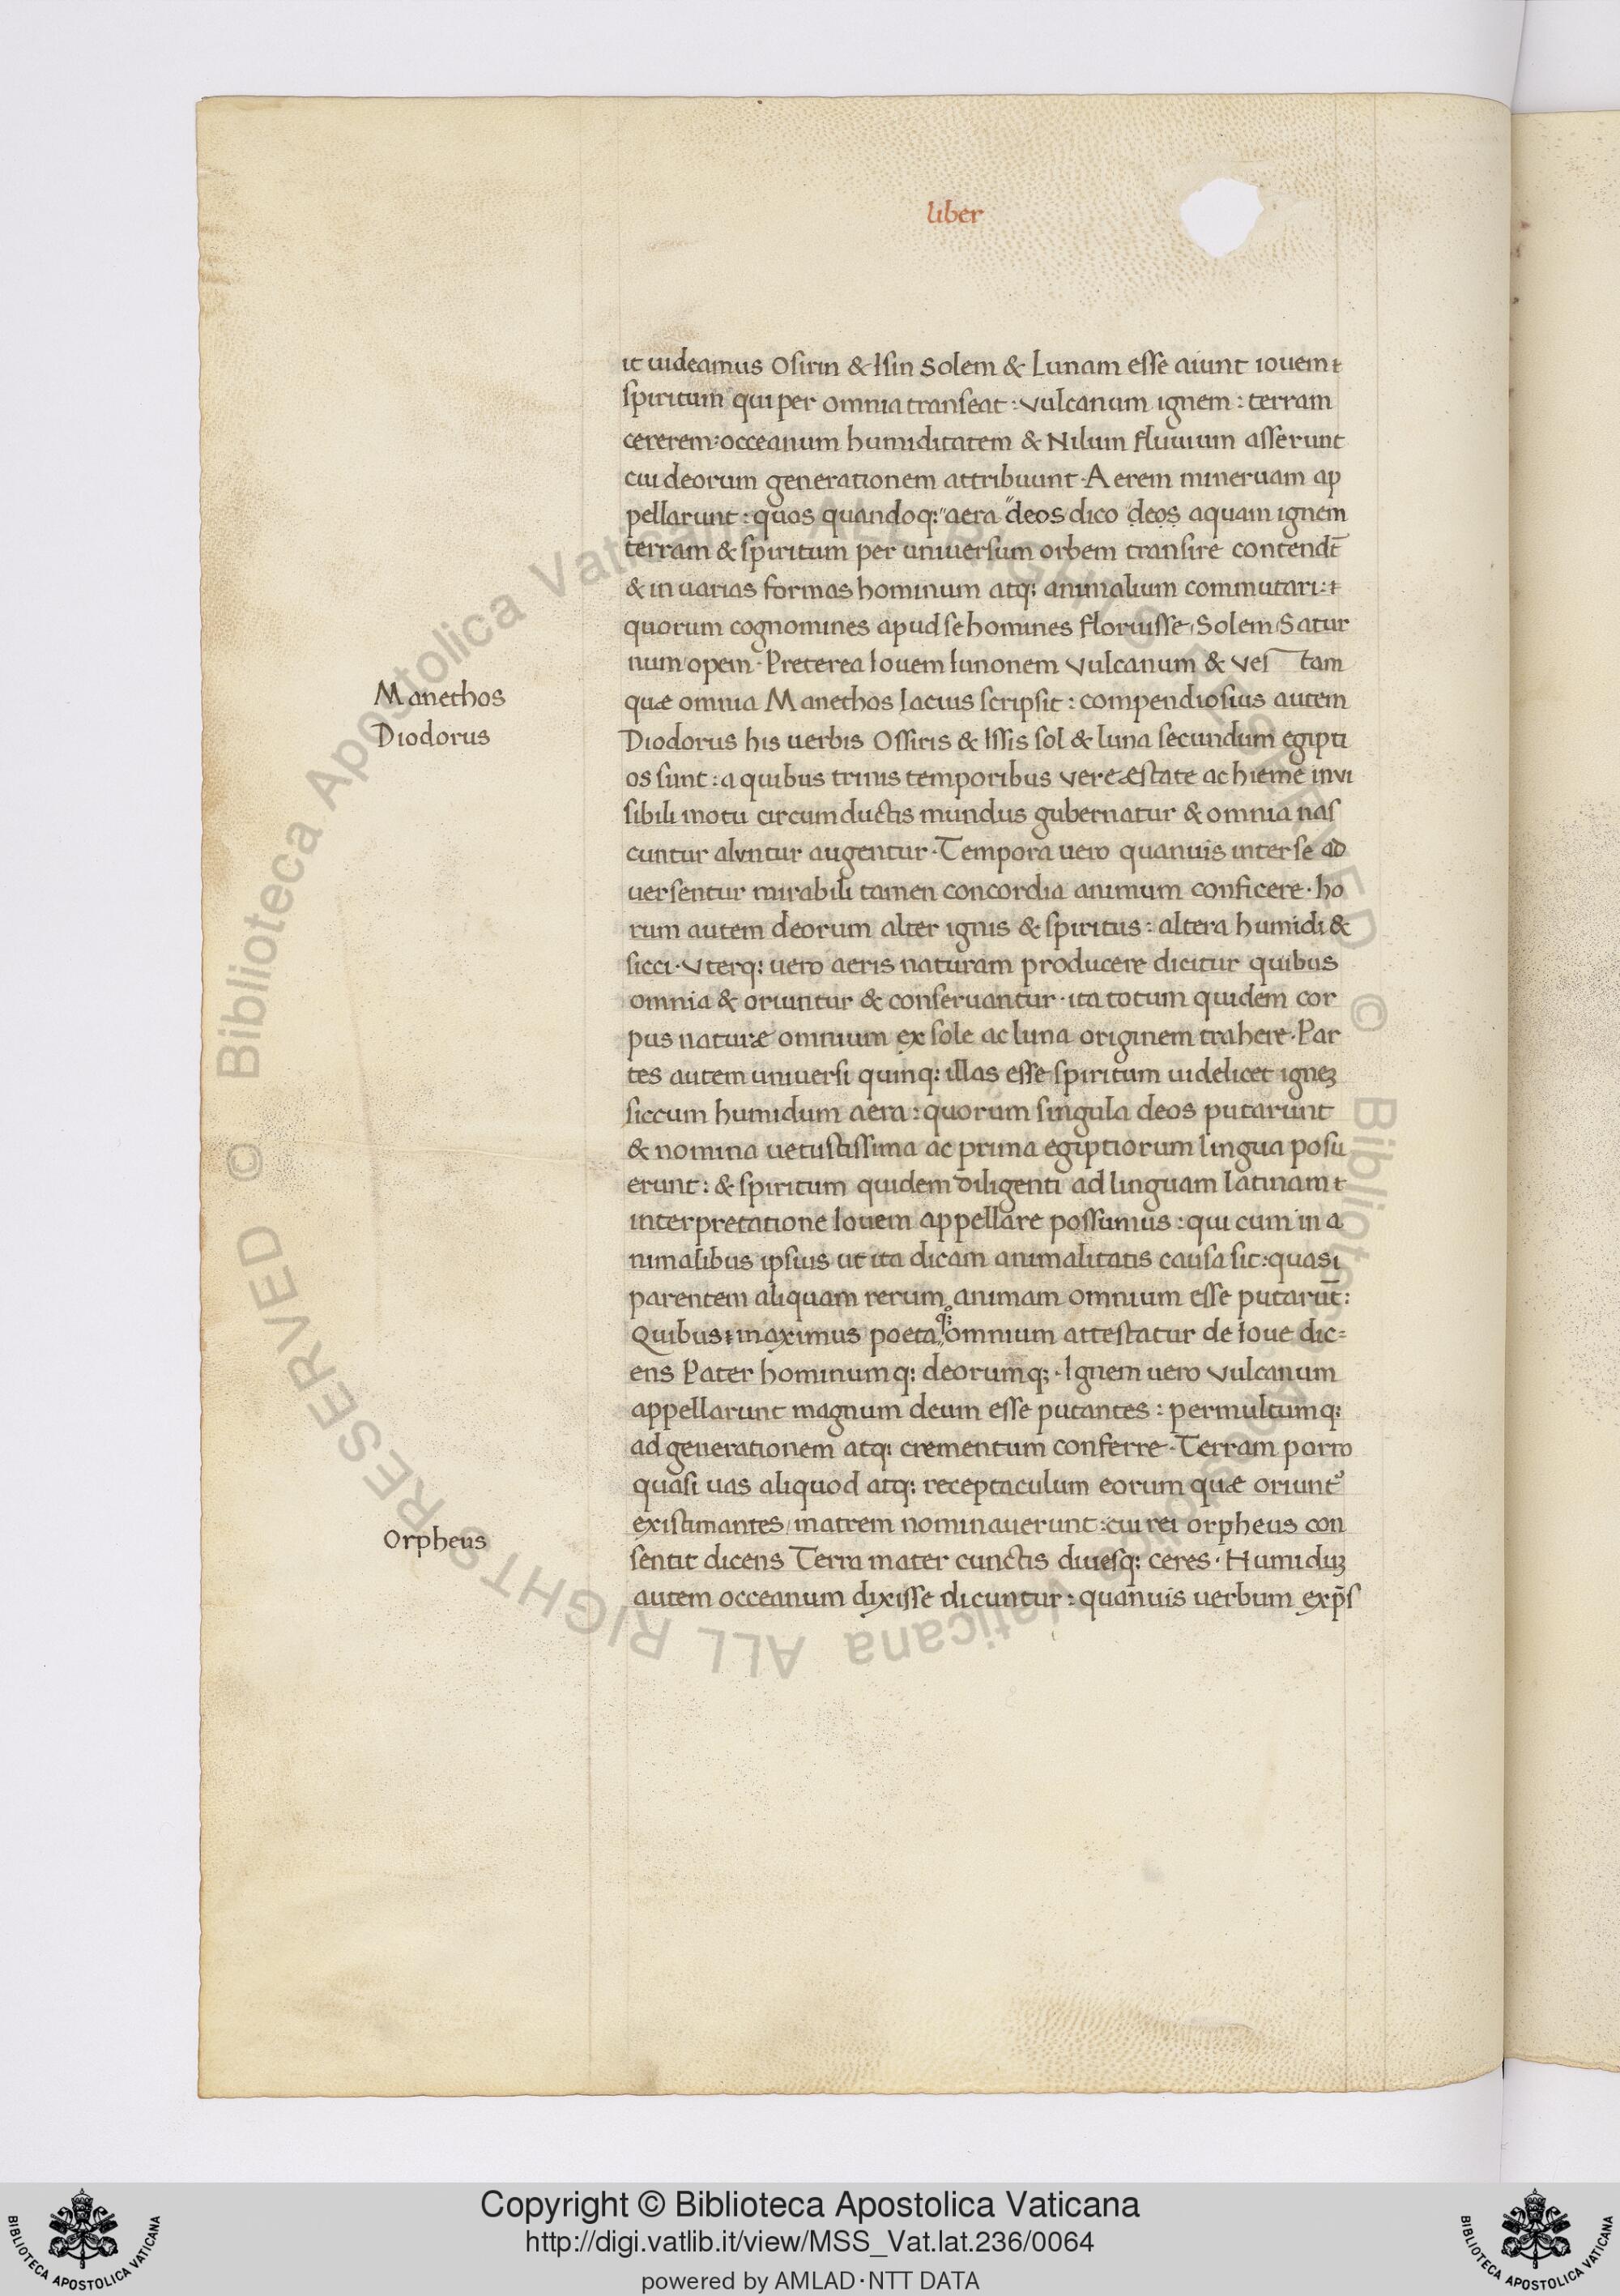 liber
it uideamus Osirin & Isin Solem & Lunam esse aiunt iouem &
spiritum qui per omnia transeat: vulcanum ignem: terram
cererem: occeanum humiditatem & Nilum fluuium asserunt
cui deorum generationem attribuunt. Aerem mineruam ap
pellarunt: quos quandoq: aera deos dico deos aquam ignem
terram & spiritum per uniuersum orbem transire contendt̄
& in uarias formas hominum atq: animalium commutari:
quorum cognomines apud se homines floruisse, Solem, Satur
num opem. Preterea Iouem Iunonem vulcanum & ves tam
Manethos
quæ omnia Manethos lacius scripsit: compendiosius autem
Diodorus
Diodorus his uerbis Ossiris & Issis sol & luna secundum egipti
os sunt: a quibus trinis temporibus vere æstate ac hieme invi
sibili motu circumductis mundus gubernatur & omnia nas
cuntur alvntur augentur. Tempora uero quanuis inter se ad
uersentur mirabili tamen concordia animum conficere. ho
rum autem deorum alter ignis & spiritus: altera humidi &
sicci. vterq: uero aeris naturam producere dicitur quibus
omnia & oriuntur & conseruantur. ita totum quidem cor
pus naturæ omnium ex sole ac luna originem trahere. Par
tes autem uniuersi quinq: illas esse spiritum uidelicet igneꝫ
siccum humidum aera: quorum singula deos putarunt
& nomina uetustissima ac prima egiptiorum lingua posu
erunt: & spiritum quidem diligenti ad linguam latinam
interpretatione Iouem appellare possumus: qui cum in a
nimalibus ipsius ut ita dicam animalitatis causa sit: quasi
parentem aliquam rerum animam omnium esse putarut̄:
Quibus maximus poeta omnium attestatur de Ioue dic=
ens Pater hominumq: deorumq;. Ignem uero vulcanum
appellarunt magnum deum esse putantes: permultumq:
ad generationem atq: crementum conferre. Terram porro
quasi uas aliquod atq: receptaculum eorum quæ oriunt᷑
existimantes, matrem nominauerunt: cui rei orpheus con
Orpheus
sentit dicens Terra mater cunctis diuesq: ceres. Humiduꝫ
autem occeanum dixisse dicuntur: quanuis uerbum exp̄s
© Biblioteca Apostolica Vaticana ALL RIGHTS RESERVED © Biblioteca Apostolica Vaticana ALL RIGHTS RESERVED
Copyright © Biblioteca Apostolica Vaticana
http://digi.vatlib.it/view/MSS_Vat.lat.236/0064
powered by AMLAD·NTT DATA
BIBLIOTECA APOSTOLICA VATICANA
BIBLIOTECA APOSTOLICA VATICANA